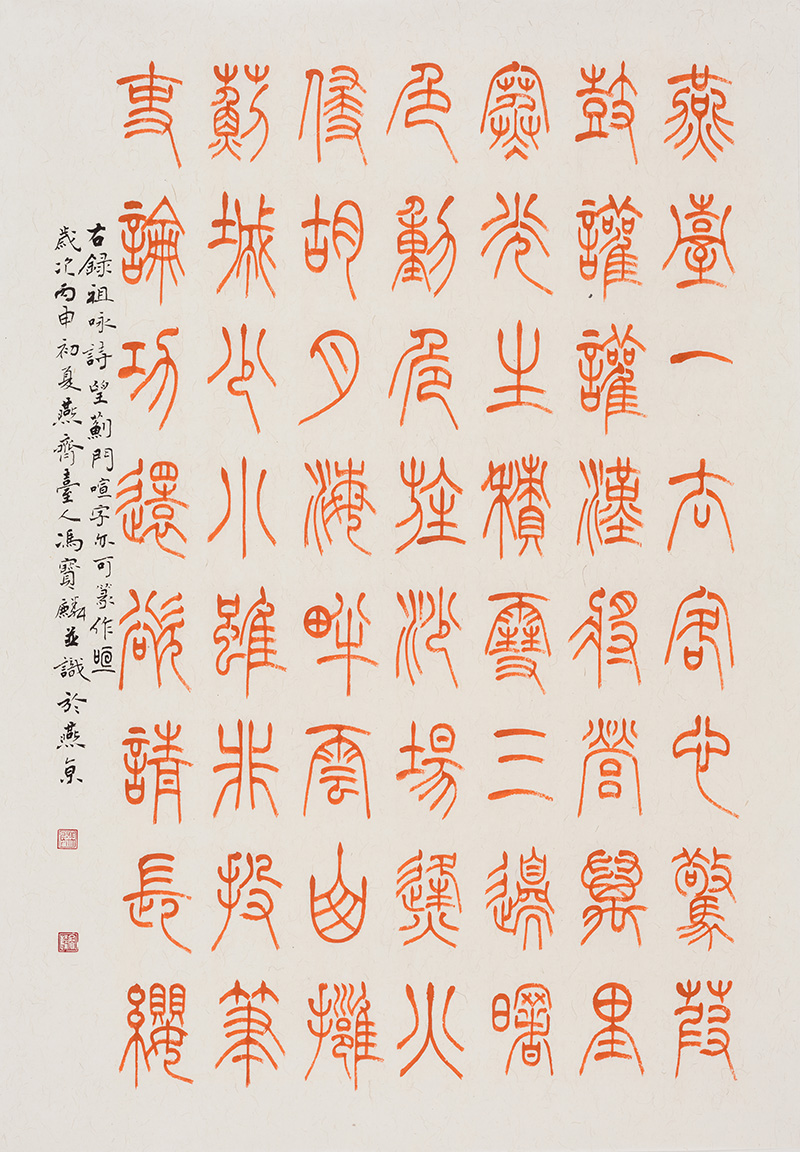 燕臺一去客心驚葭
鼓讙讙漢將營萬里
寒光生積雪三邊曙
色動危旌沙場烽火
侵胡月海畔雲山擁
薊城少小雖非投筆
吏論功還欲請長纓
右録祖咏詩望薊門喧字亦可篆作
歲次丙申初夏燕齊臺人馮寶麟並識於燕京